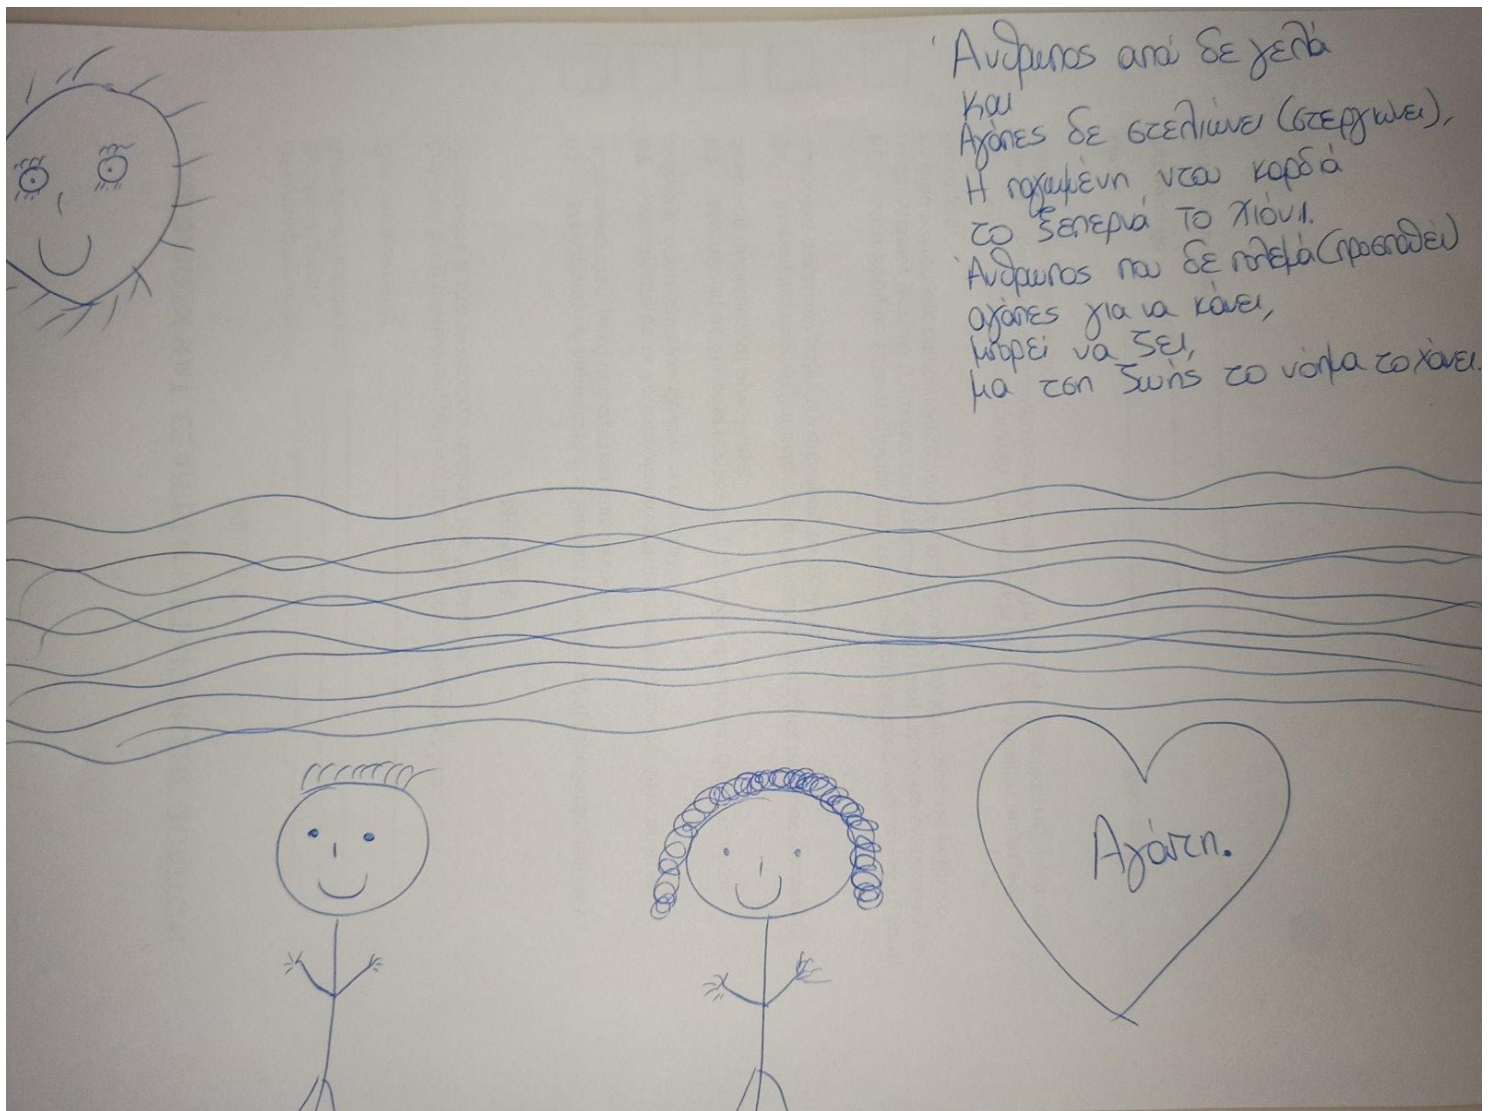 Άνθρωπος απού δε γελά
και
Αγάπες δε στελιώνει (στεργιώνει),
Η παγωμένη ντου καρδιά
το ξεπερνά το χιόνι.
Άνθρωπος που δε πολεμά (προσπαθεί)
αγάπες για να κάνει,
μπορεί να ζει,
μα τση ζωής το νόημα το χάνει.
Αγάπη.